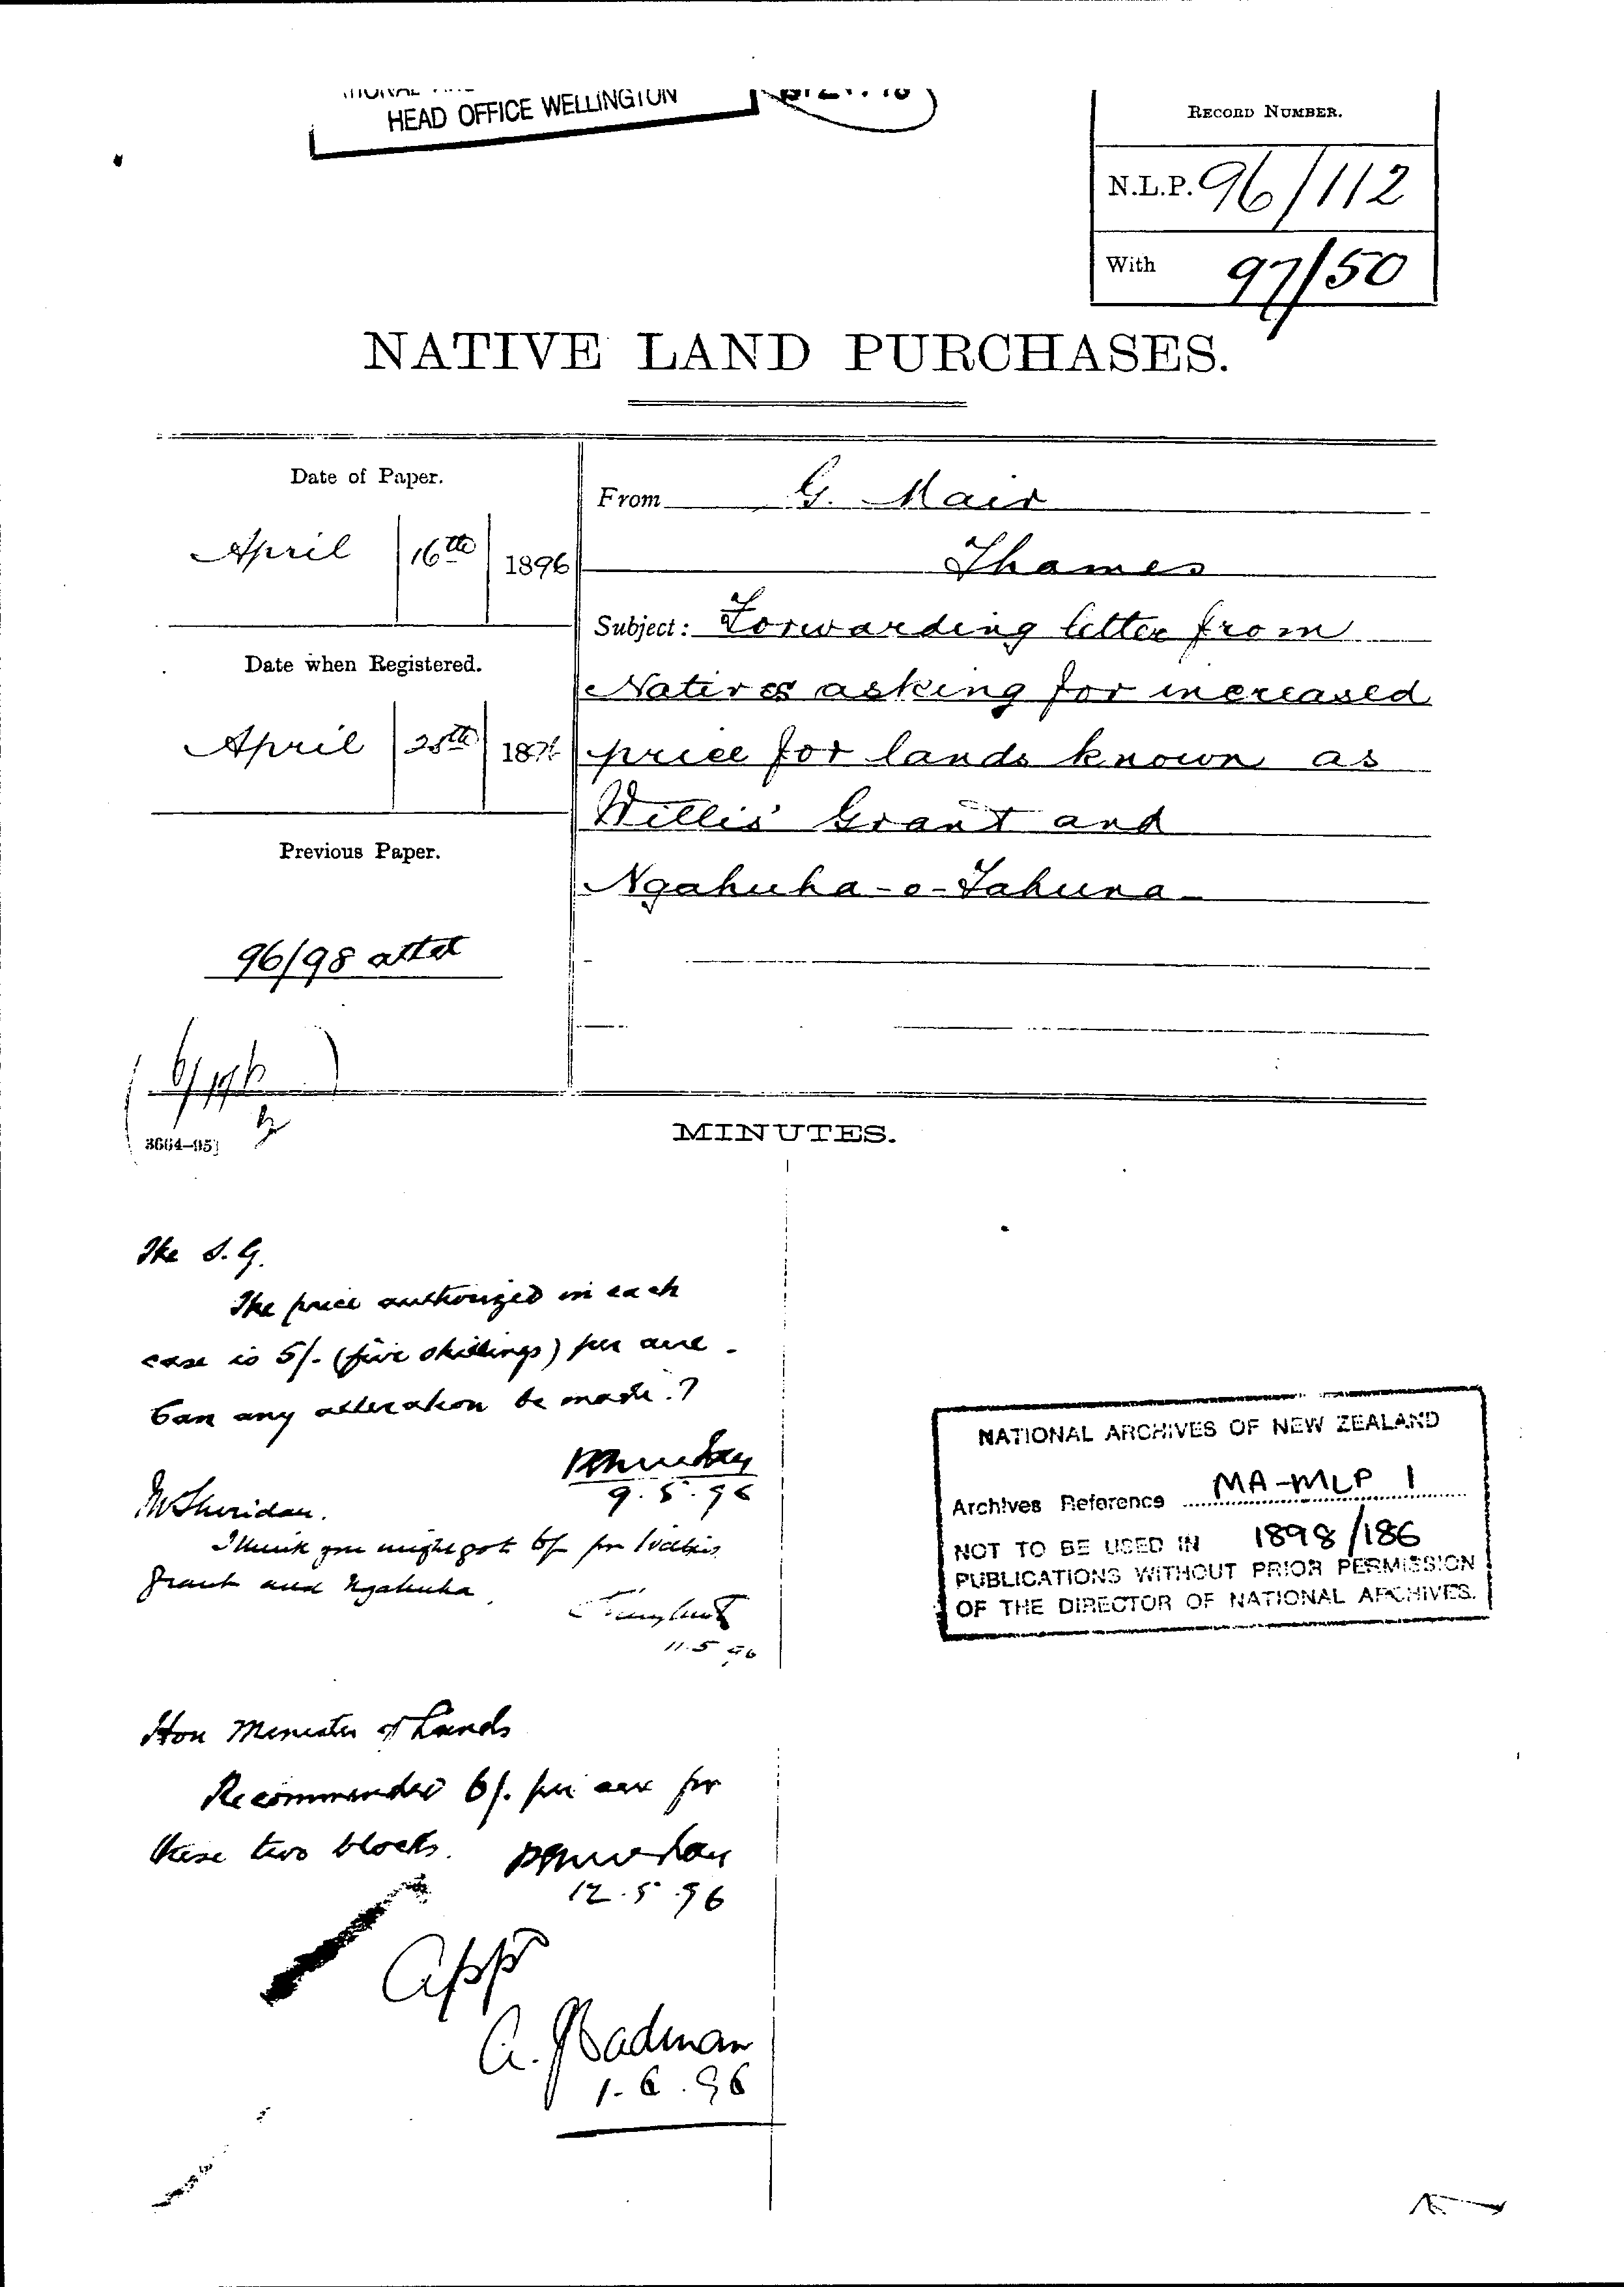 HEAD OFFICE WELLINGTON
RECORD NUMBER.
N.L.P. 96/112
With 97/50
NATIVE LAND PURCHASES.
Date of Paper.
April 16th 1896
Date when Registered.
April 28th 1896
Previous Paper.
96/98 attd
3664–95]
From G. Mair
Thames
Subject: Forwarding letter from
Natives asking for increased
price for lands known as
Willis' Grant and
Ngahuha-o-Tahuna
MINUTES.
The S. G.
The price authorized in each
case is 5/- (five shillings) per acre.
Can any alteration be made?
9.5.96
Mr Sheridan.
I think you might go to 6/- for Willis
Grant and Ngahuha.
11.5.96
Hon Minister of Lands
Recommended 6/- per acre for
these two blocks.
12.5.96
App
A. J. Cadman
1.6.96
NATIONAL ARCHIVES OF NEW ZEALAND
Archives Reference MA-MLP 1
NOT TO BE USED IN 1898/186
PUBLICATIONS WITHOUT PRIOR PERMISSION
OF THE DIRECTOR OF NATIONAL ARCHIVES.